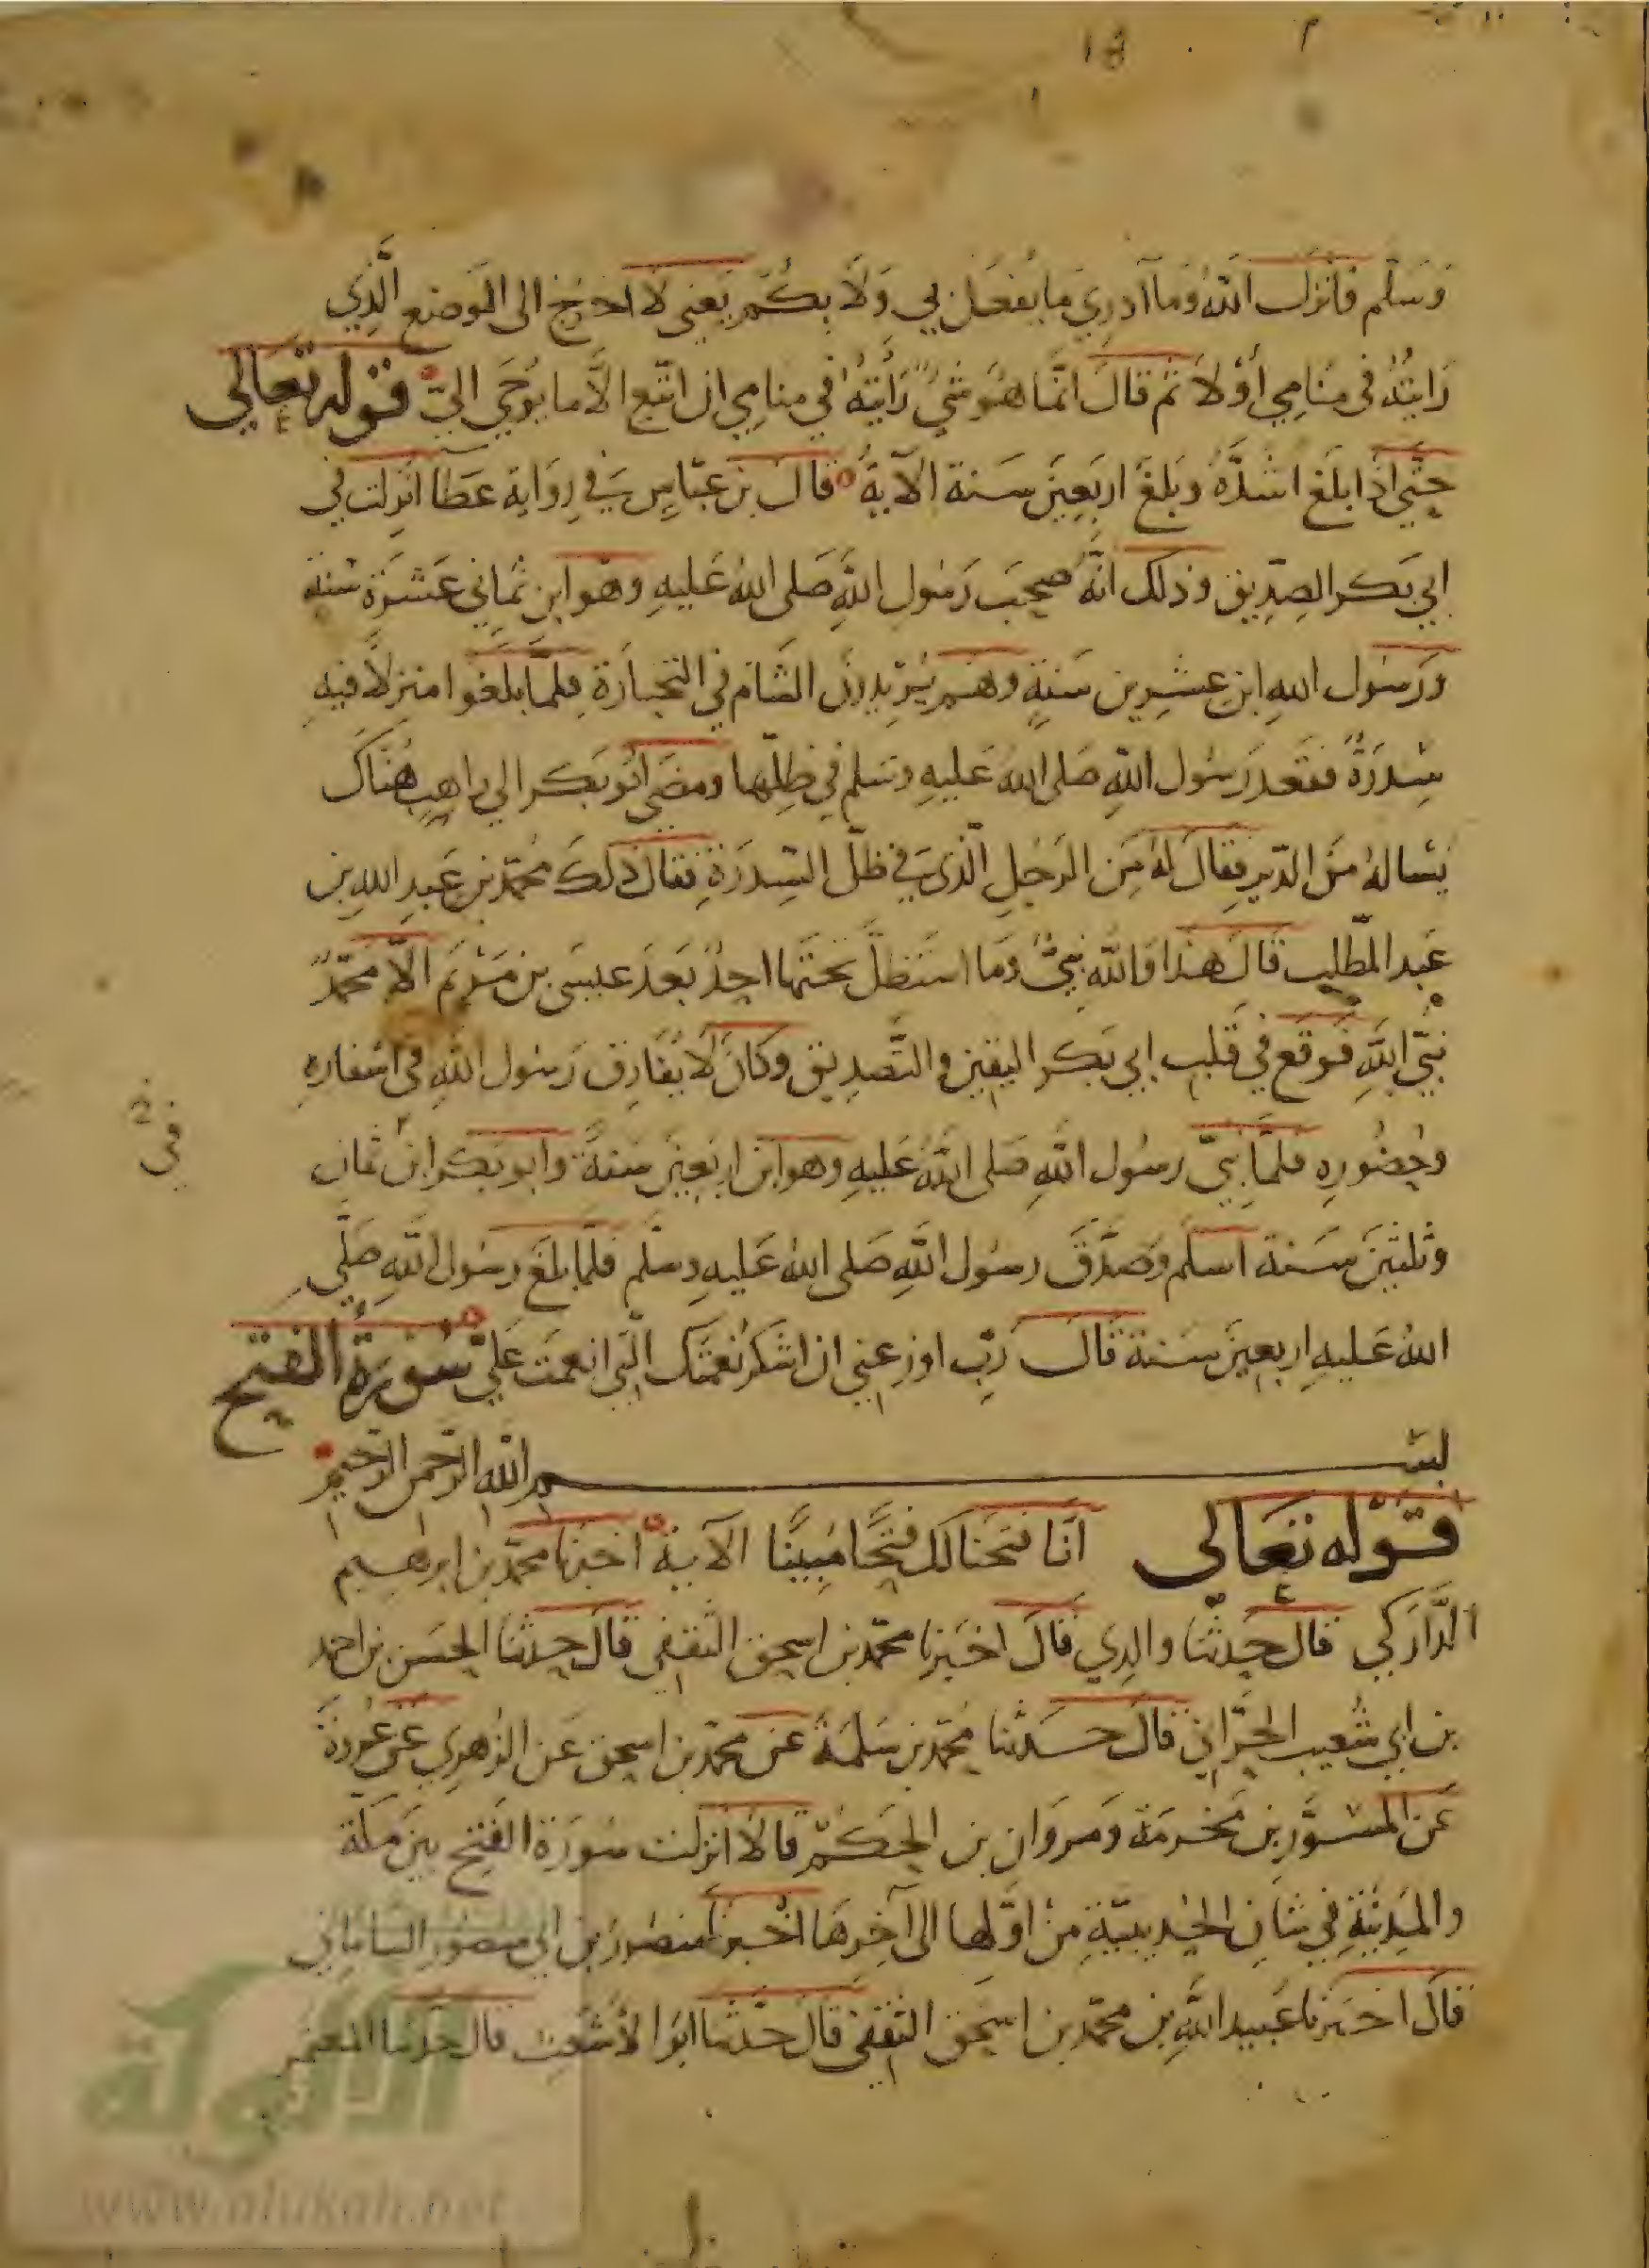 18
وَسَلّم فانزل اللهُ وَما آدري ما يفعل بي وَلا بكُم يعنى لا اخرج الى الموضع الَّذِي
رَايتُهُ فى منامِي أوْ لا ثم قال انّما هُوَ شيءٌ رَأيتهُ في منامِي ان اتّبع الاَّ ما يُوحَى اليّ قوله تعَالى
حتّى اذا بلغ اشدّهُ وبَلغَ اربَعِينَ سَنة الآيةُ قال بن عبّاسٍ في رِوَاية عَطا انزلت في
ابي بكر الصِدّيق وذلك انّهُ صحِبَ رَسُول اللهِ صَلى اللهُ عَليهِ وهو ابن ثماني عَشرَة سنةٍ
ورَسُول اللهِ ابن عشرِين سَنةٍ وهم يُرِيدونَ الشَام في التجارَةِ فلمّا بلغوا منزلاً فيهِ
سِدرَةٌ فقعد رَسُول اللهِ صَلى اللهُ عَليهِ وسَلم في ظِلّها ومضَى ابُو بكر الي راهبٍ هُنَاكَ
يَسالهُ عَن الدّينِ فقالَ لهُ مَن الرَجُلِ الّذى في ظلّ السِدرَةِ فقال ذلكَ محُمّد بن عَبدِ اللهِ بن
عَبد المطّلِب قالَ هذا وَاللهِ نبيٌّ وَما استَظلَّ تحتَها احدٌ بَعدَ عيسَى بن مَرْيَم الاّ محمّدٌ
نبيّ اللهِ فوَقع في قَلبِ ابي بَكر اليقين والتَّصدِيق وكانَ لَا يُفارِق رَسُول اللهِ فى اسْفارِهِ
في
وحضُورِهِ فلمّا نُبّيَ رسُول اللهِ صَلى اللهُ عَليهِ وهو ابن اربَعِينَ سَنةً وابو بَكر ابن ثمان
وثلثينَ سَنة اسلم وصَدَّقَ رسُول اللهِ صَلى اللهُ عَليهِ وسلّم فلمّا بلغَ رسُول اللهِ صَلّى
اللهُ عَليهِ اربعِينَ سَنة قالَ رَبّ اوزعني ان اشكرَ نعمتَك الّتي انعمتَ عَليّ سُورَةُ الفتح
بسم الله الرّحمن الرّحيم
قوله تعَالى انّا فتحنا لك فتحًا مُبينًا الآية اخبرَنا محمّد بن ابرهيم
الدَّارَكي قال حدثنا والدِي قالَ اخبَرنا محمّد بن اسحق الثقفي قالَ حدثنا الحسَن بن احمد
بن ابي شعيب الحرَّاني قالَ حدثنا محُمّد بن سَلمَةَ عَن محمّد بن اسحق عَن الزُهرِي عَن عُروَةَ
عَن المسوَرِ بن مَخرمَة وَمروَان بن الحَكم قالاَ انزلت سُورَة الفتح بين مكّة
والمَدِينَةِ في شانِ الحُدَيبيّةِ مِن اوَّلها الى آخِرهَا اخبرنا منصُور بن ابي منصور السّامانِي
قالَ اخبَرنا عَبيد اللهِ بن محمّد بن اسحق الثقفي قال حدّثنا ابُو الاشعَث قال حدثنا المعتمر
الألوكة
www.alukah.net